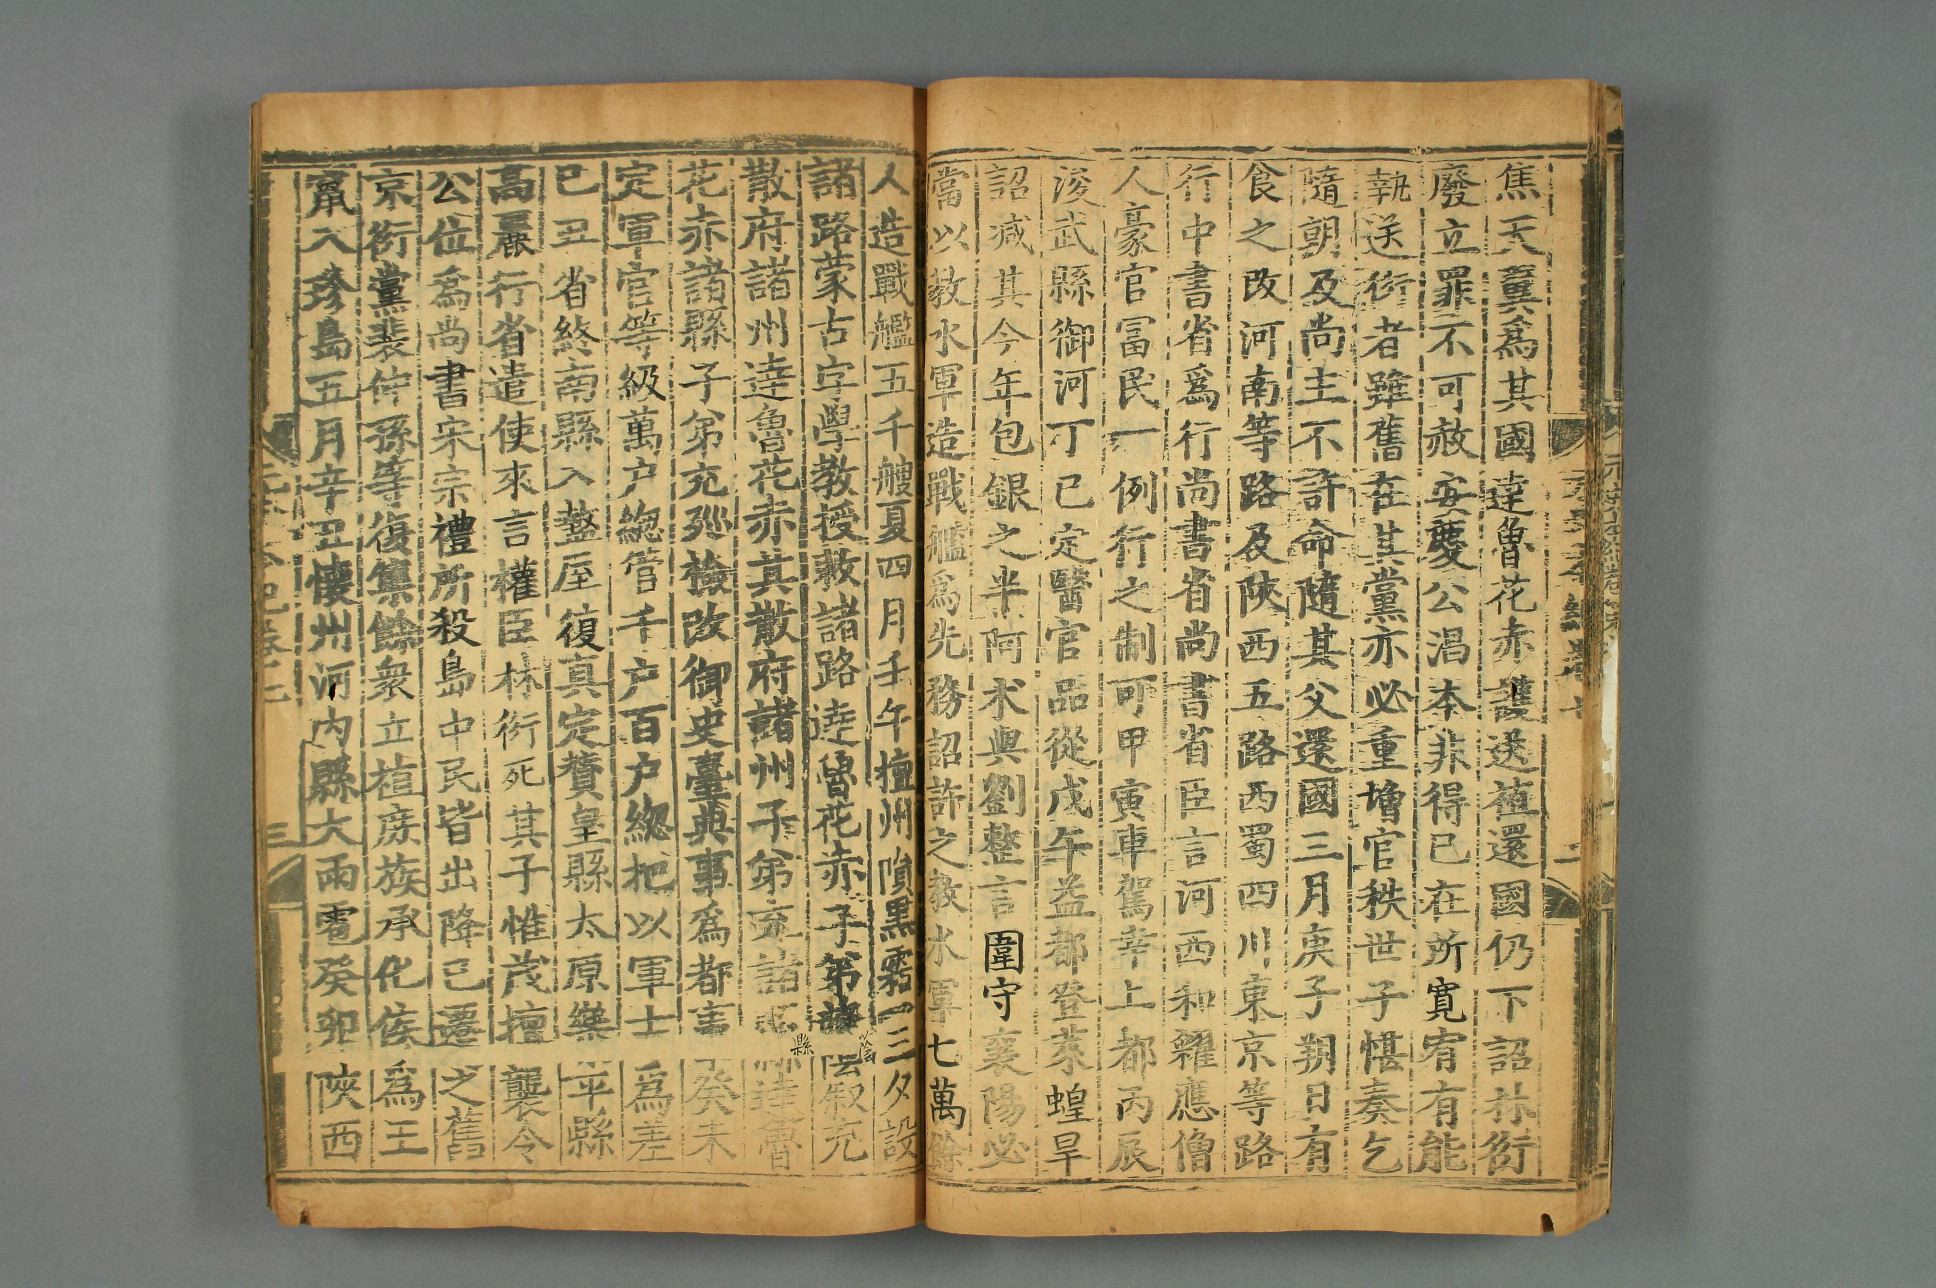 焦天翼爲其國達魯花赤護送禃還國仍下詔林衍
廢立罪不可赦安慶公淐本非得已在所寬宥有能
執送衍者雖舊在其黨亦必重增官秩世子愖奏乞
隨朝及尚主不許命隨其父還國三月庚子朔日有
食之改河南等路及陝西五路西蜀四川東京等路
行中書省爲行尚書省尚書省臣言河西和糴應僧
人豪官冨民一例行之制可甲寅車駕幸上都丙辰
浚武縣御河丁巳定醫官品從戊午益都登萊蝗旱
詔減其今年包銀之半阿术與劉整言圍守襄陽必
當以教水軍造戰艦爲先務詔許之教水軍七萬餘
人造戰艦五千艘夏四月壬午檀州隕黑霜二三夕設
諸路蒙古字學教授敕諸路達魯花赤子弟䕃叙充
散府諸州達魯花赤其散府諸州子弟充諸縣達魯
花赤諸縣子弟充廵檢改御史臺典事爲都事癸未
定軍官等級萬户緫管千户百户緫把以軍士爲差
己丑省終南縣入盩厔復真定贊皇縣太原樂平縣
高麗行省遣使來言權臣林衍死其子惟茂擅襲令
公位爲尚書宋宗禮所殺島中民皆出降已遷之舊
京衍黨裴仲孫等復集餘衆立禃庶族承化侯爲王
竄入珍島五月辛丑懷州河内縣大雨雹癸卯陝西
三
縣
䕃
二